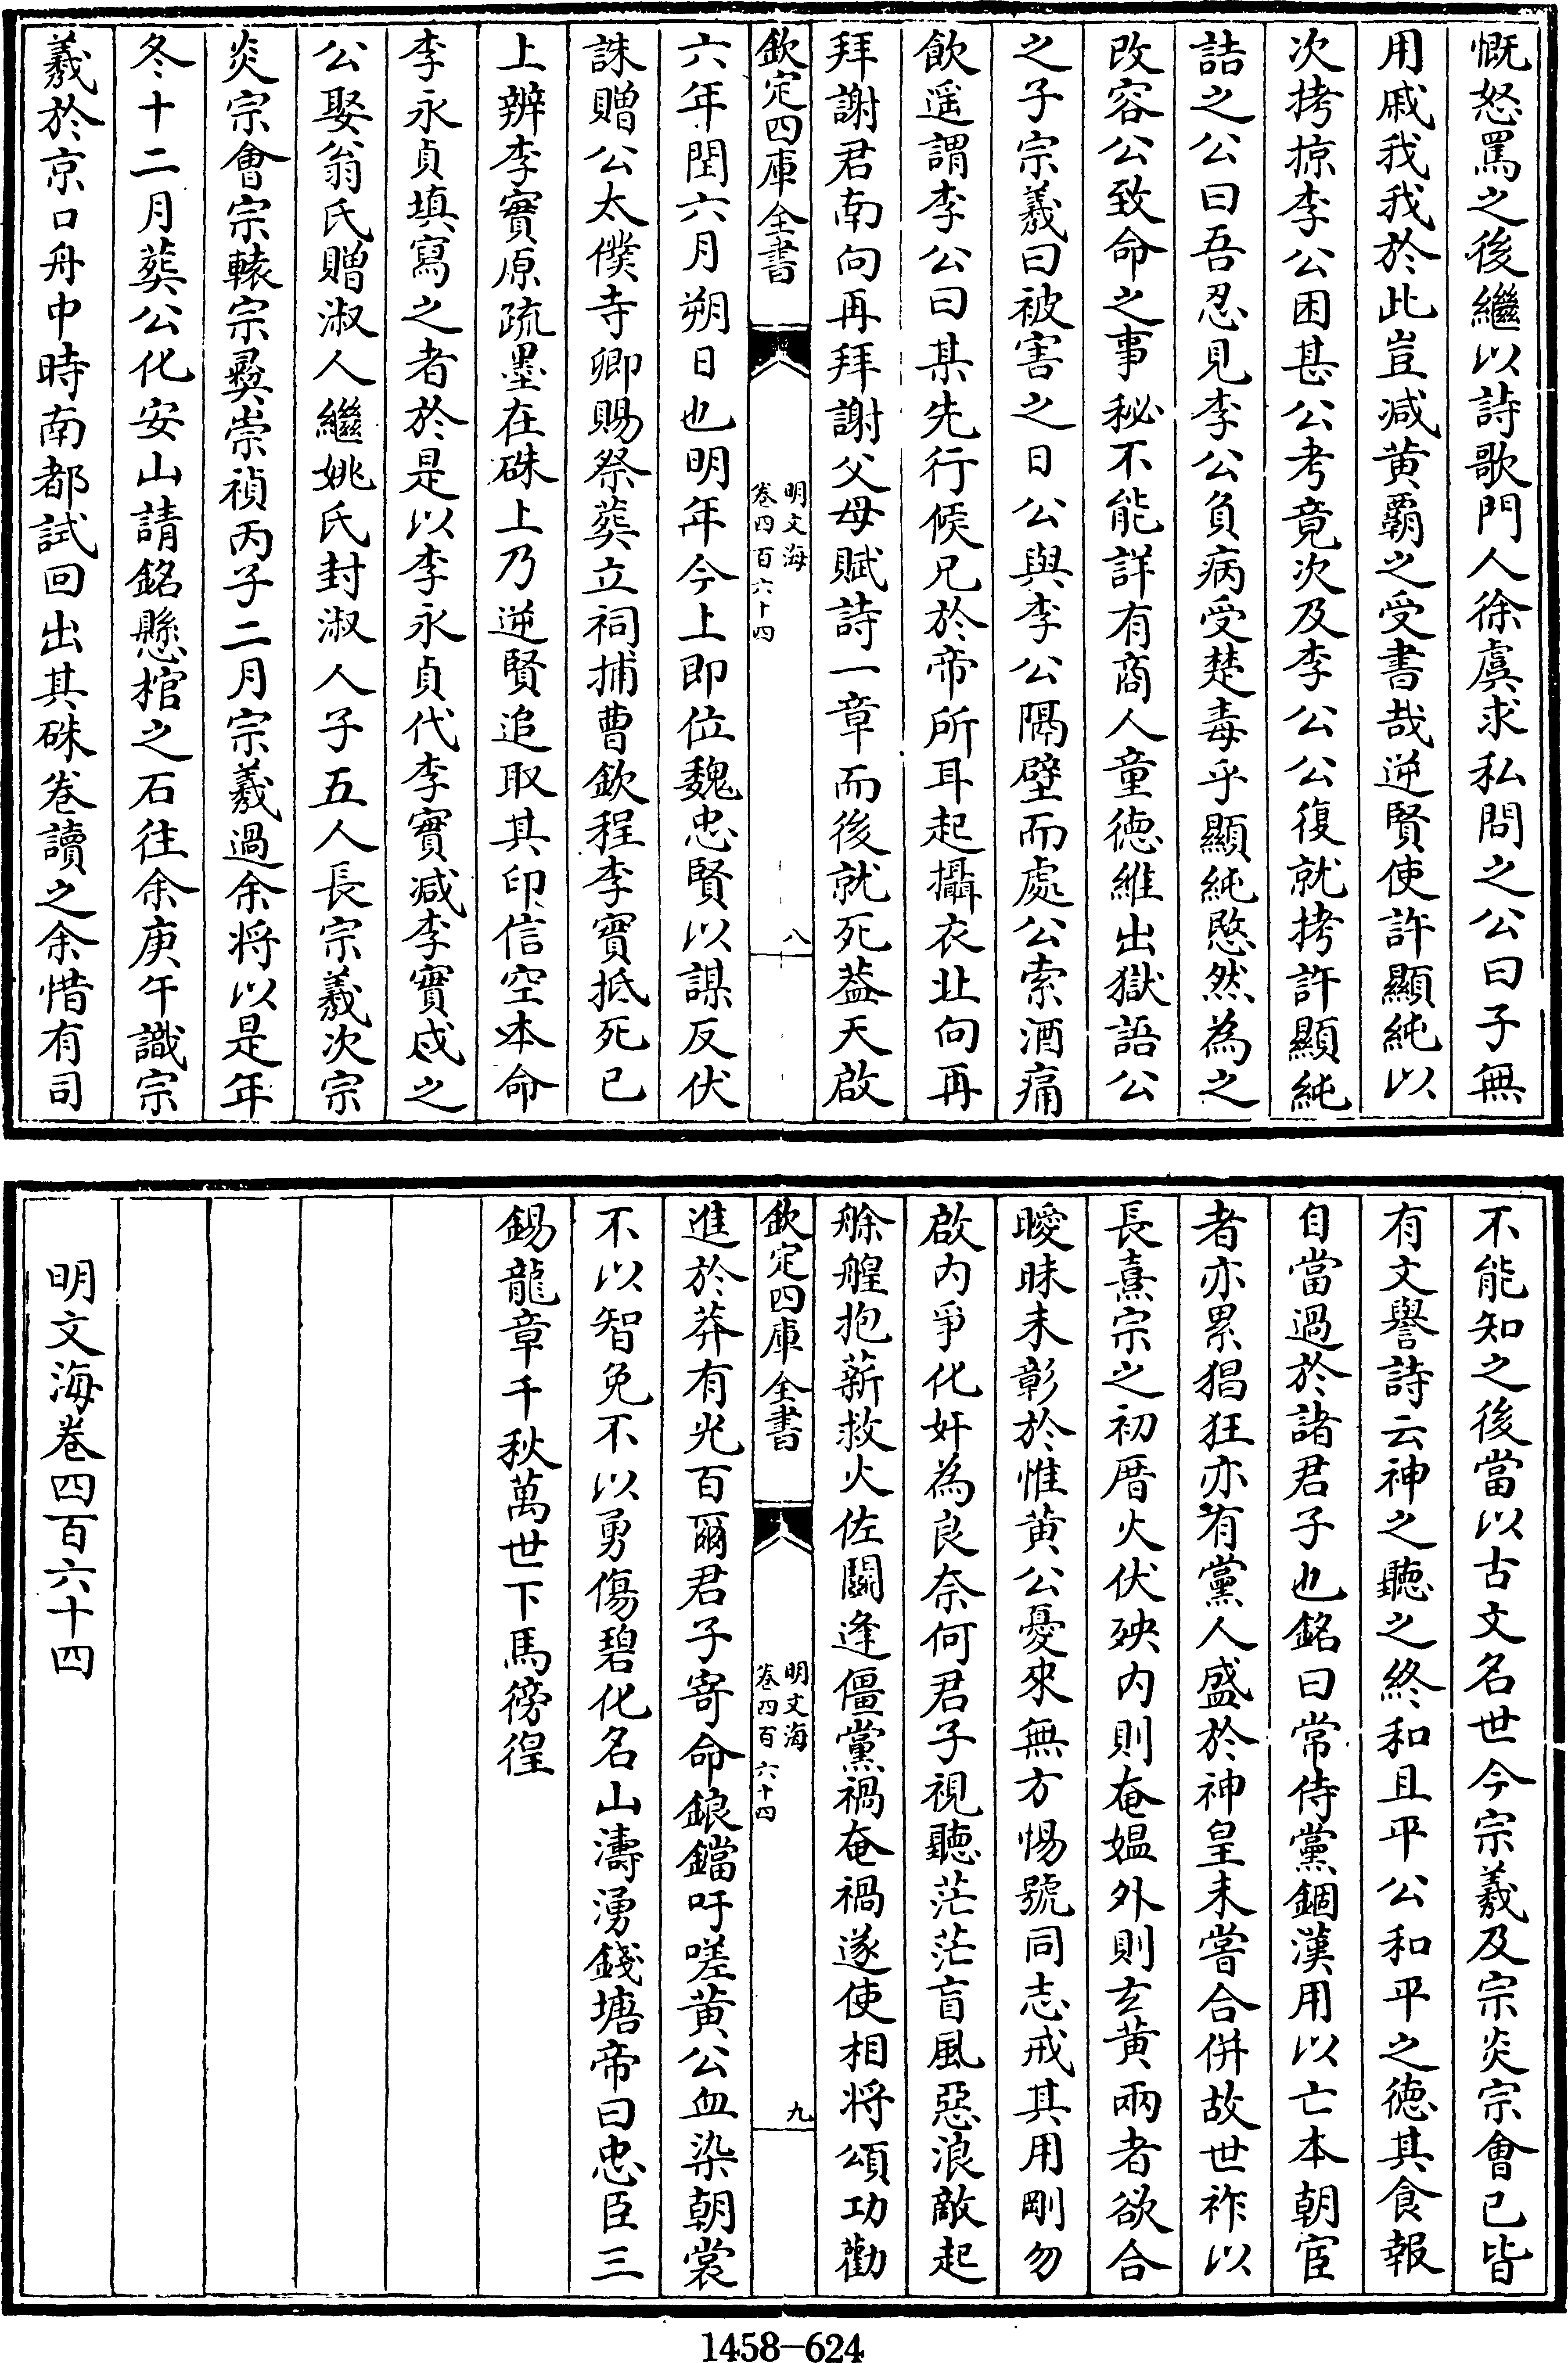 慨怒罵之後繼以詩歌門人徐虞求私問之公曰子無
用戚我我於此豈减黄霸之受書哉逆賢使許顯純以
次拷掠李公困甚公考竟次及李公公復就拷許顯純
詰之公曰吾忍見李公負病受楚毒乎顯純愍然為之
改容公致命之事秘不能詳有商人童徳維出獄語公
之子宗羲曰被害之日公與李公隔壁而處公索酒痛
飲遥謂李公曰某先行候兄於帝所耳起攝衣北向再
拜謝君南向再拜謝父母賦詩一章而後就死葢天啟
欽定四庫全書
明文海
卷四百六十四
八
六年閏六月朔日也明年今上即位魏忠賢以謀反伏
誅贈公太僕寺卿賜祭葬立祠捕曹欽程李實抵死已
上辨李實原疏墨在硃上乃逆賢追取其印信空本命
李永貞填寫之者於是以李永貞代李實减李實戍之
公娶翁氏贈淑人繼姚氏封淑人子五人長宗羲次宗
炎宗會宗轅宗彞崇禎丙子二月宗羲過余將以是年
冬十二月葬公化安山請銘懸棺之石往余庚午識宗
羲於京口舟中時南都試回出其硃卷讀之余惜有司
不能知之後當以古文名世今宗羲及宗炎宗會已皆
有文譽詩云神之聽之終和且平公和平之徳其食報
自當過於諸君子也銘曰常侍黨錮漢用以亡本朝宦
者亦累猖狂亦有黨人盛於神皇未嘗合併故世祚以
長熹宗之初厝火伏殃内則奄媪外則玄黄兩者欲合
曖昧未彰於惟黄公憂來無方惕號同志戒其用剛勿
啟内爭化奸為良奈何君子視聽茫茫盲風惡浪敵起
艅艎抱薪救火佐鬬逢僵黨禍奄禍遂使相將頌功勸
欽定四庫全書
明文海
卷四百六十四
九
進於莽有光百爾君子寄命鋃鐺吁嗟黄公血染朝裳
不以智免不以勇傷碧化名山濤湧錢塘帝曰忠臣三
錫龍章千秋萬世下馬徬徨
明文海卷四百六十四
1458-624